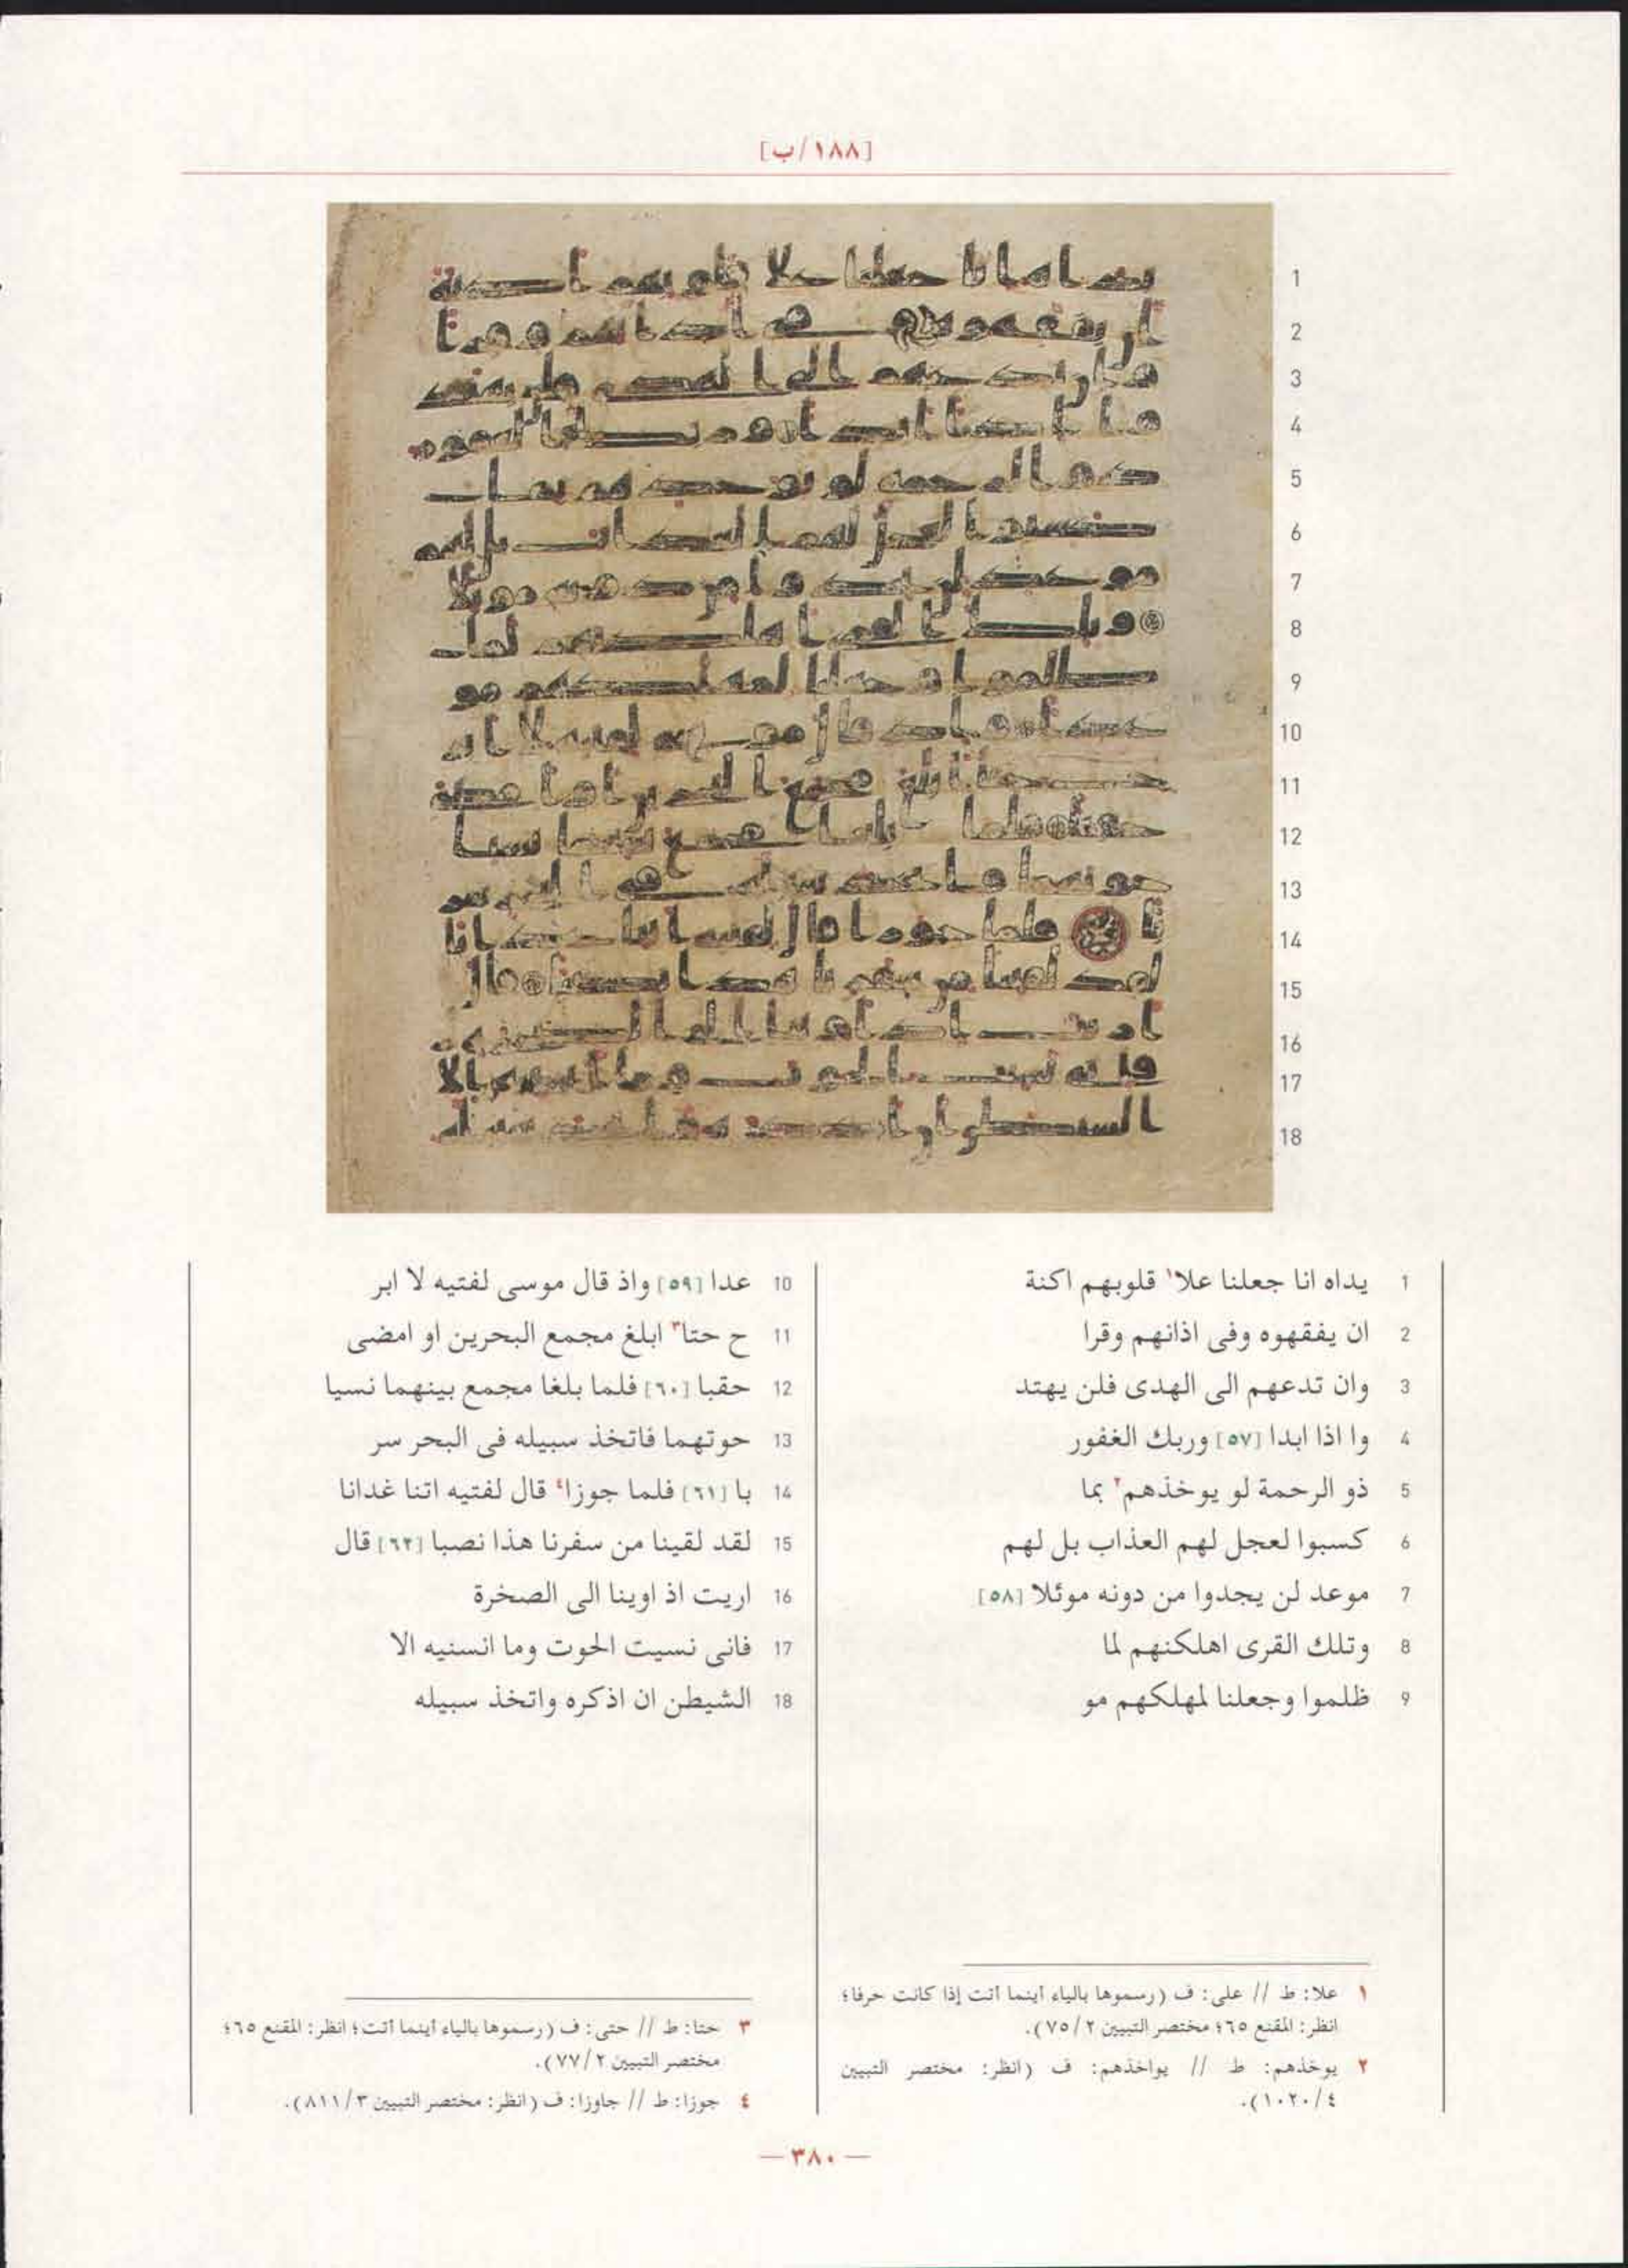 [١٨٨/ب]
1 يداه انا جعلنا علا١ قلوبهم اكنة
2 ان يفقهوه وفى اذانهم وقرا
3 وان تدعهم الى الهدى فلن يهتد
4 وا اذا ابدا [٥٧] وربك الغفور
5 ذو الرحمة لو يوخذهم٢ بما
6 كسبوا لعجل لهم العذاب بل لهم
7 موعد لن يجدوا من دونه موئلا [٥٨]
8 وتلك القرى اهلكنهم لما
9 ظلموا وجعلنا لمهلكهم مو
10 عدا [٥٩] واذ قال موسى لفتيه لا ابر
11 ح حتا٣ ابلغ مجمع البحرين او امضى
12 حقبا [٦٠] فلما بلغا مجمع بينهما نسيا
13 حوتهما فاتخذ سبيله فى البحر سر
14 با [٦١] فلما جوزا٤ قال لفتيه اتنا غدانا
15 لقد لقينا من سفرنا هذا نصبا [٦٢] قال
16 اريت اذ اوينا الى الصخرة
17 فانى نسيت الحوت وما انسنيه الا
18 الشيطن ان اذكره واتخذ سبيله
١ علا: ط // على: ف (رسموها بالياء أينما أتت إذا كانت حرفا؛
انظر: المقنع ٦٥؛ مختصر التبيين ٧٥/٢).
٢ يوخذهم: ط // يواخذهم: ف (انظر: مختصر التبيين
١٠٢٠/٤).
٣ حتا: ط // حتى: ف (رسموها بالياء أينما أتت؛ انظر: المقنع ٦٥؛
مختصر التبيين ٧٧/٢).
٤ جوزا: ط // جاوزا: ف (انظر: مختصر التبيين ٨١١/٣).
— ٣٨٠ —